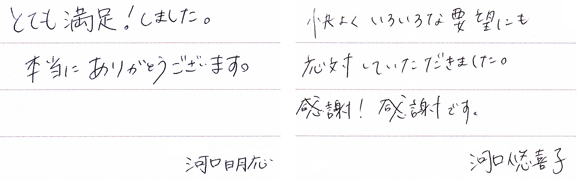 とても満足！しました。
本当にありがとうございます。
河口明応
快よくいろいろな要望にも
応対していただきました。
感謝！感謝です。
河口悠喜子